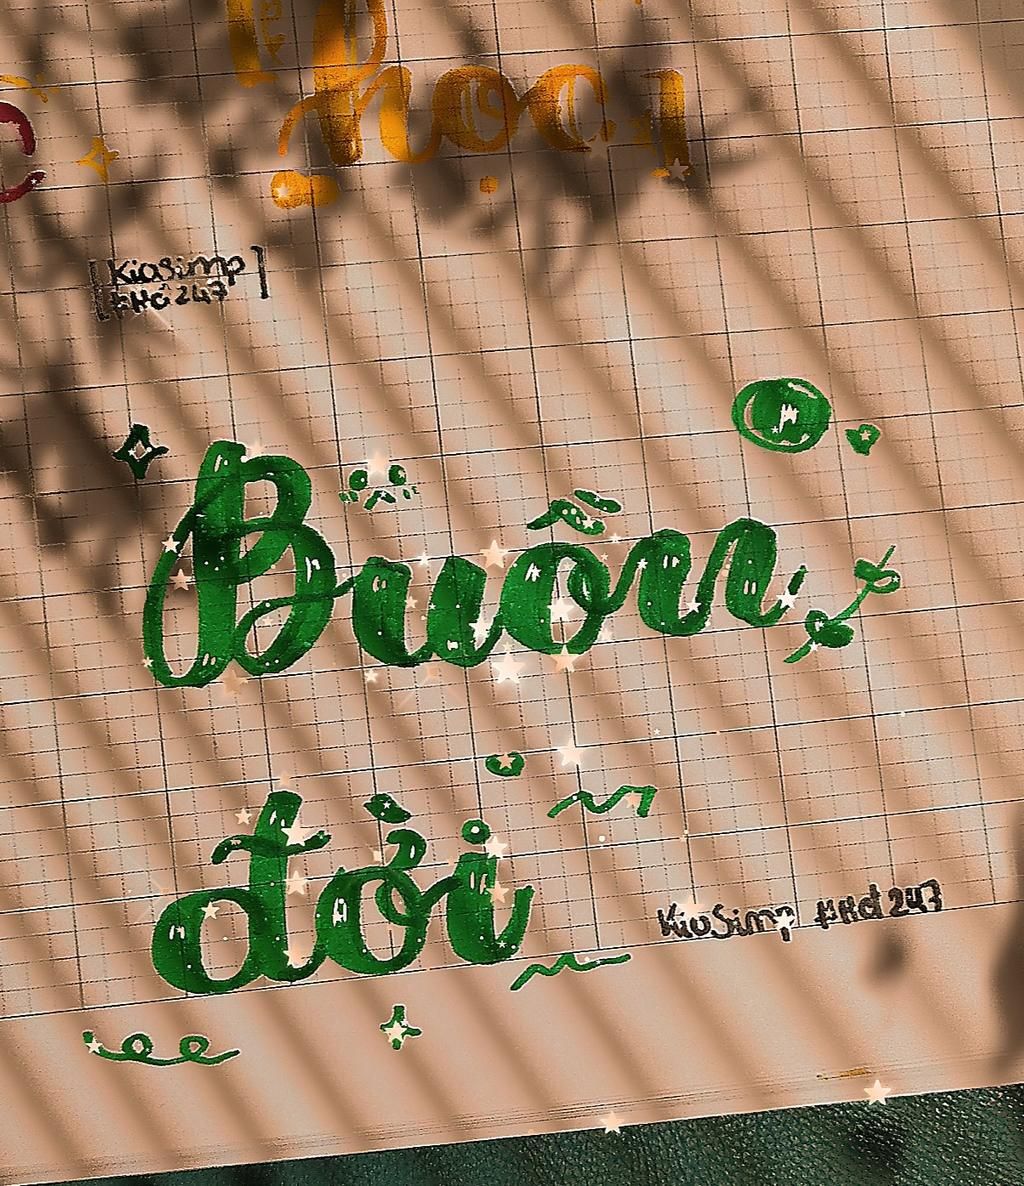 [Kiasimp]
#Hd 247
Buồn
đời
KiaSimp #Hd 247